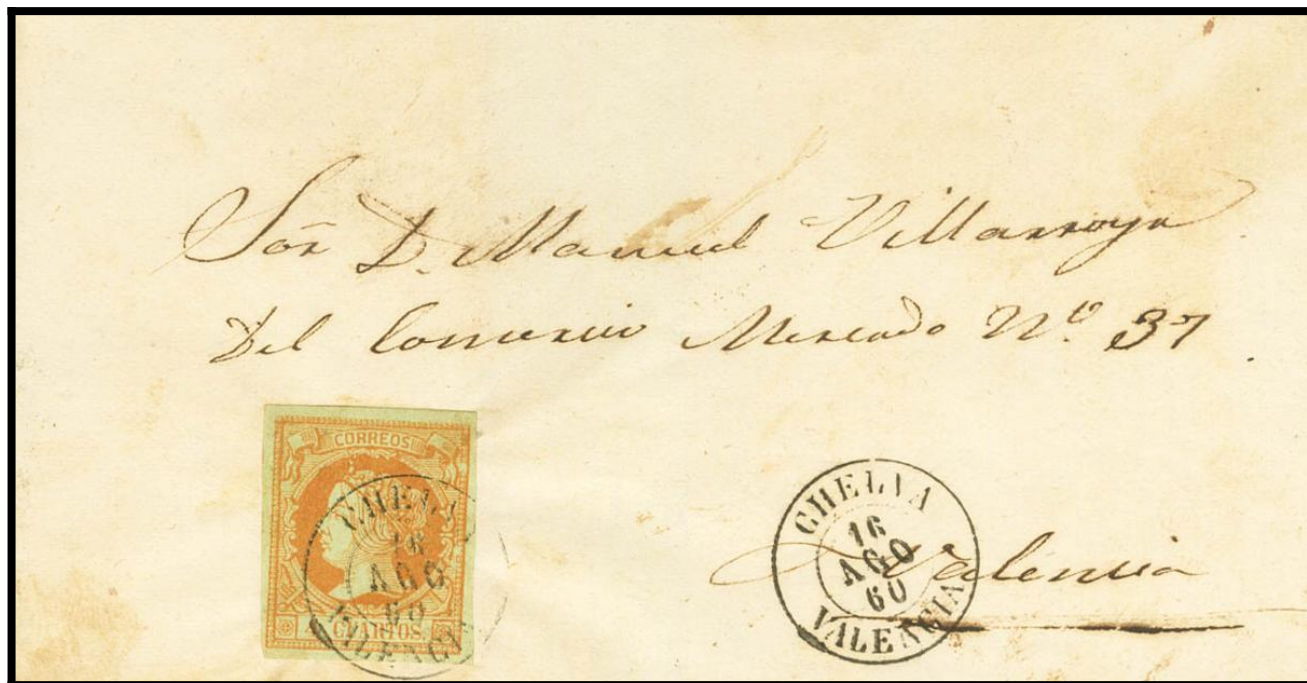 Sor D. Manuel Villarroya
Del Comercio Mercado No. 37
CORREOS
CHELVA
16
AGO
60
VALENCIA
4 CUARTOS.
CHELVA
16
AGO
60
VALENCIA
Valencia